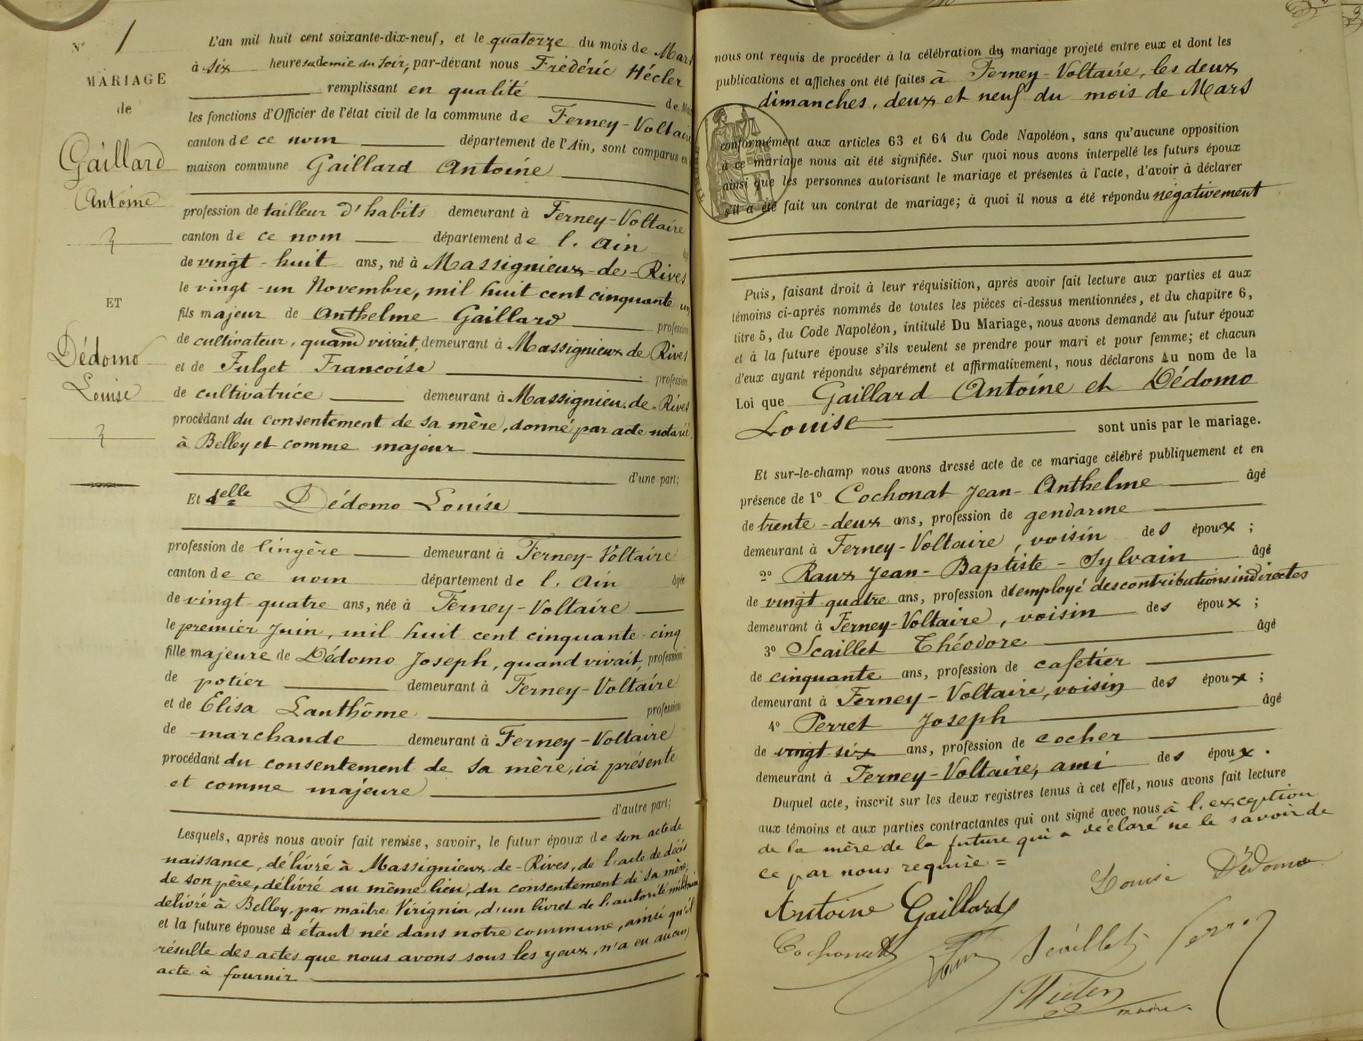 N° 1
MARIAGE
de
Gaillard
Antoine
ET
Dédomo
Louise
L'an mil huit cent soixante-dix-neuf, et le quatorze du mois de Mars
à six heures et demie du soir, par-devant nous Frédéric Hécler
remplissant en qualité de
les fonctions d'Officier de l'état civil de la commune de Ferney-Voltaire
canton de ce nom département de l'Ain, sont comparus en
maison commune Gaillard Antoine
profession de tailleur d'habits demeurant à Ferney-Voltaire
canton de ce nom département de l'Ain
de vingt-huit ans, né à Massignieux-de-Rives
le vingt-un Novembre, mil huit cent cinquante un
fils majeur de Anthelme Gaillard profession
de cultivateur, quand vivait, demeurant à Massignieux de Rives
et de Fulget Francoise profession
de cultivatrice demeurant à Massignieu.de.Rives
procédant du consentement de sa mère, donné par acte notarié
à Belley et comme majeur
d'une part;
Et Delle Dédomo Louise
profession de lingère demeurant à Ferney-Voltaire
canton de ce nom département de l'Ain âgée
de vingt quatre ans, née à Ferney-Voltaire
le premier Juin, mil huit cent cinquante-cinq
fille majeure de Dédomo Joseph, quand vivait, profession
de potier demeurant à Ferney-Voltaire
et de Elisa Lanthôme profession
de marchande demeurant à Ferney-Voltaire
procédant du consentement de sa mère, ici présente
et comme majeure
d'autre part;
Lesquels, après nous avoir fait remise, savoir, le futur époux de son acte de
naissance, délivré à Massignieux-de-Rives, de l'acte de décès
de son père, délivré au même lieu, du consentement de sa mère
délivré à Belley par maître Virignin, d'un livret de l'autorité militaire
et la future épouse étant née dans notre commune, ainsi qu'il
résulte des actes que nous avons sous les yeux, n'a eu aucun
acte à fournir
nous ont requis de procéder à la célébration du mariage projeté entre eux et dont les
publications et affiches ont été faites à Ferney-Voltaire, les deux
dimanches, deux et neuf du mois de Mars
conformément aux articles 63 et 64 du Code Napoléon, sans qu'aucune opposition
à ce mariage nous ait été signifiée. Sur quoi nous avons interpellé les futurs époux
ainsi que les personnes autorisant le mariage et présentes à l'acte, d'avoir à déclarer
s'il a été fait un contrat de mariage; à quoi il nous a été répondu négativement
Puis, faisant droit à leur réquisition, après avoir fait lecture aux parties et aux
témoins ci-après nommés de toutes les pièces ci-dessus mentionnées, et du chapitre 6,
titre 5, du Code Napoléon, intitulé Du Mariage, nous avons demandé au futur époux
et à la future épouse s'ils veulent se prendre pour mari et pour femme; et chacun
d'eux ayant répondu séparément et affirmativement, nous déclarons au nom de la
Loi que Gaillard Antoine et Dédomo
Louise sont unis par le mariage.
Et sur-le-champ nous avons dressé acte de ce mariage célébré publiquement et en
présence de 1° Cochonat Jean-Anthelme âgé
de trente-deux ans, profession de gendarme
demeurant à Ferney-Voltaire, voisin des époux;
2° Raux Jean-Baptiste-Sylvain âgé
de vingt quatre ans, profession d'employé des contributions indirectes
demeurant à Ferney-Voltaire, voisin des époux;
3° Scaillet Théodore âgé
de cinquante ans, profession de cafetier
demeurant à Ferney-Voltaire, voisin des époux;
4° Perret Joseph âgé
de vingt six ans, profession de cocher
demeurant à Ferney-Voltaire, ami des époux.
Duquel acte, inscrit sur les deux registres tenus à cet effet, nous avons fait lecture
aux témoins et aux parties contractantes qui ont signé avec nous à l'exception
de la mère de la future qui a déclaré ne le savoir de
ce par nous requise =
Antoine Gaillard Louise Dédomo
Cochonat Raux Scaillet Perret
Hécler
maire.